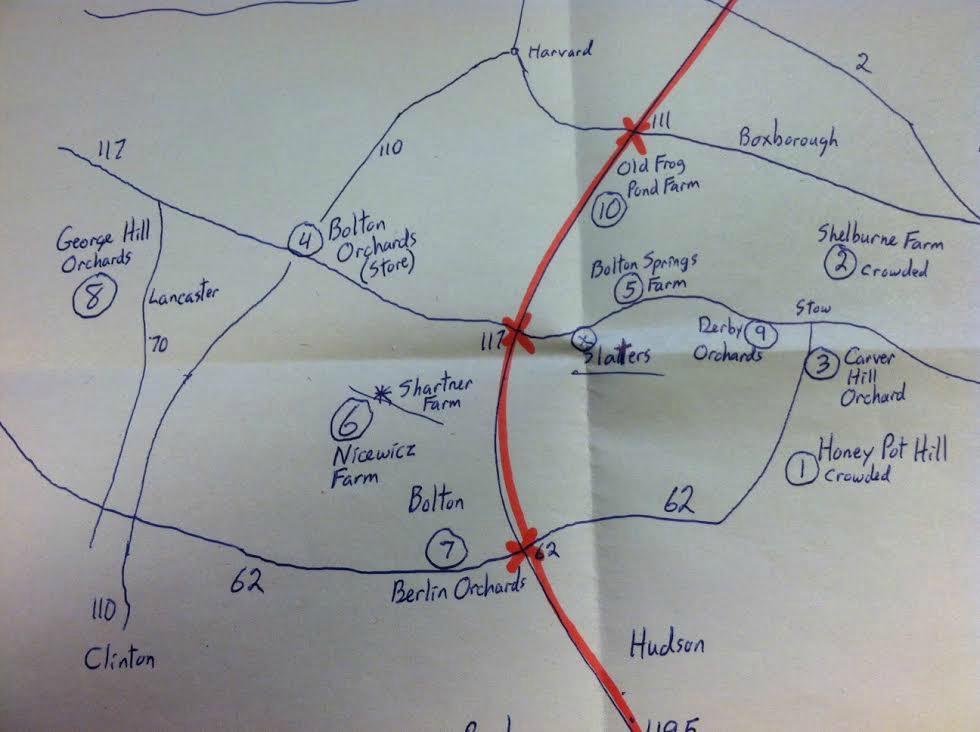 Harvard
2
111
Boxborough
117
110
Old Frog
Pond Farm
10
George Hill
Orchards
8
4
Bolton
Orchards
(Store)
Shelburne Farm
2
Crowded
Bolton Springs
5
Farm
Lancaster
70
117
x
Slatters
Derby
9
Orchards
Stow
3
Carver
Hill
Orchard
Shartner
Farm
6
Nicewicz
Farm
1
Honey Pot Hill
Crowded
Bolton
62
7
62
62
Berlin Orchards
110
Clinton
Hudson